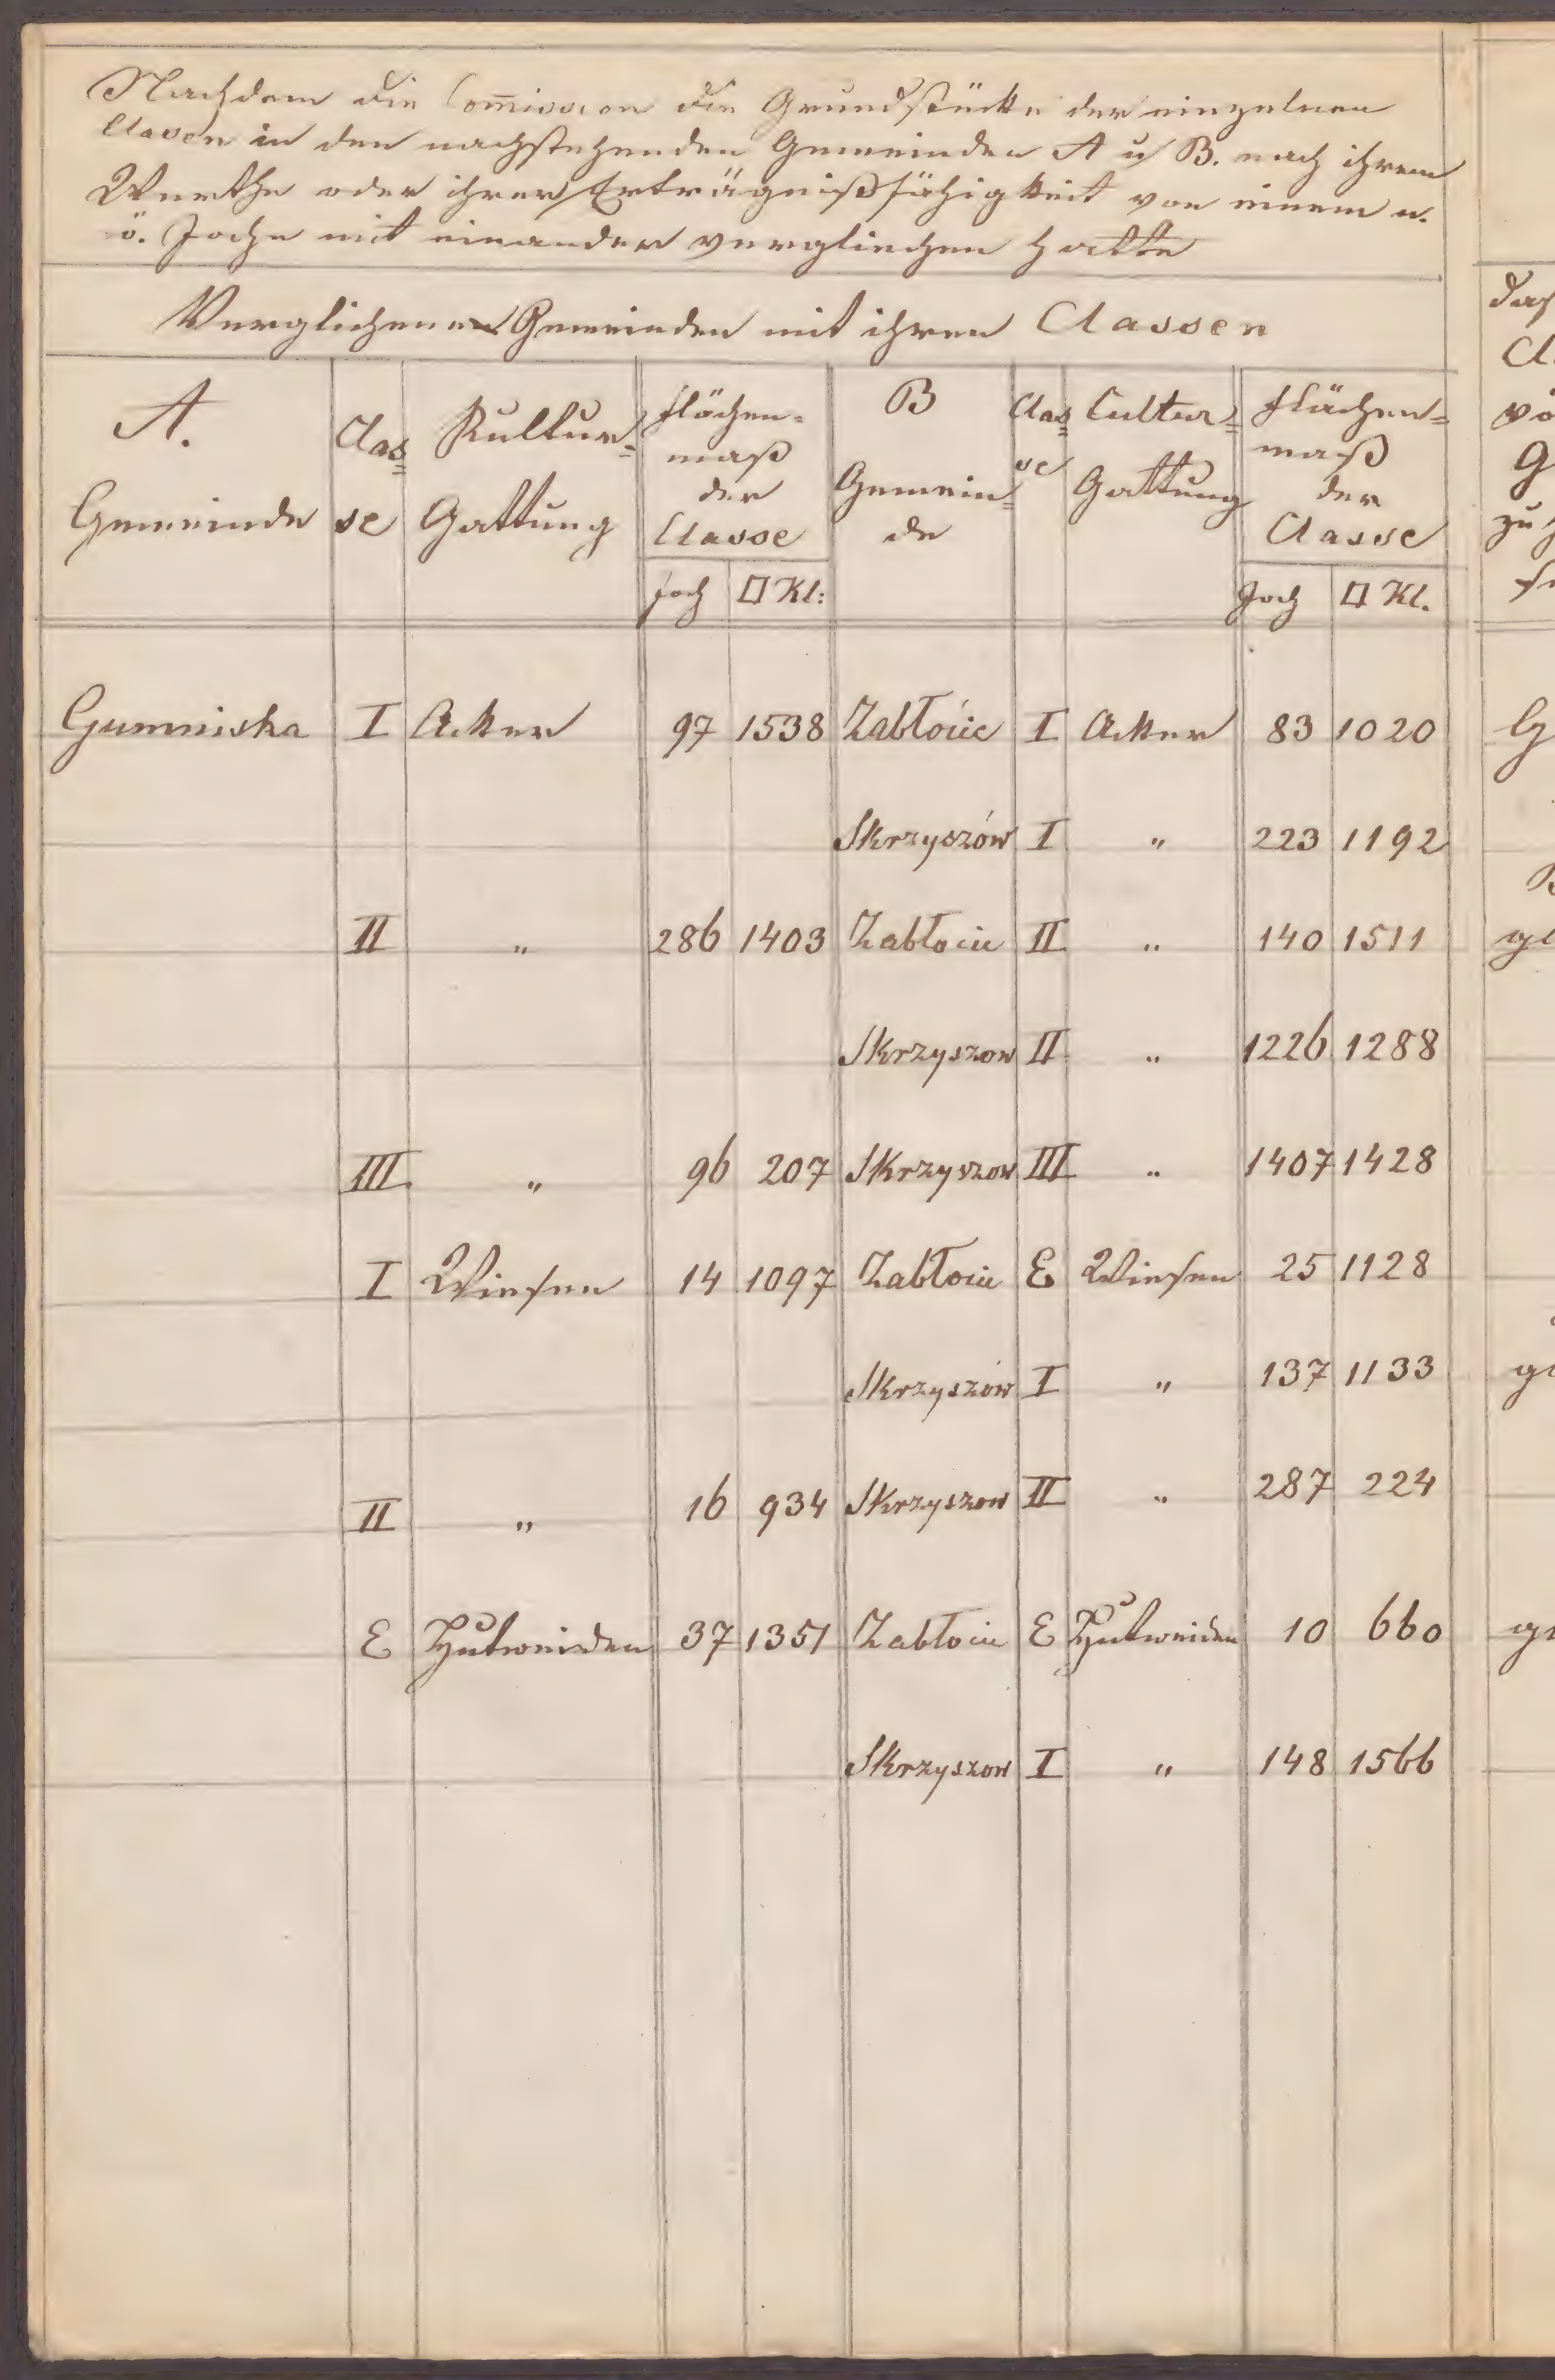 Nachdem die Com̅ission die Grundstücke der einzelnen
Classen in den nachstehenden Gemeinden A u B. nach ihrem
Werthe oder ihrer Erträgnißfähigkeit von einem n.
ö. Joche mit einander vergliechen hatte
Verglichenen Gemeinden mit ihren Classen
A. Gemeinde | Clas=se | Kultur=Gattung | Flächen=maß der Classe Joch | □ Kl: | B Gemein=de | Clas=se | Cultur=Gattung | Flächen=maß der Classe Joch | □ Kl.
Gumniska I Acker 97 1538 Zabłócie I Acker 83 1020
Skrzyszów I " 223 1192
II " 286 1403 Zabłocie II " 140 1511
Skrzyszow II " 1226 1288
III " 96 207 Skrzyszow III " 1407 1428
I Wiesen 14 1097 Zabłocie E Wiesen 25 1128
Skrzyszów I " 137 1133
II " 16 934 Skrzyszow II " 287 224
E Hutweiden 37 1351 Zabłocie E Hutweiden 10 660
Skrzyszow I " 148 1566